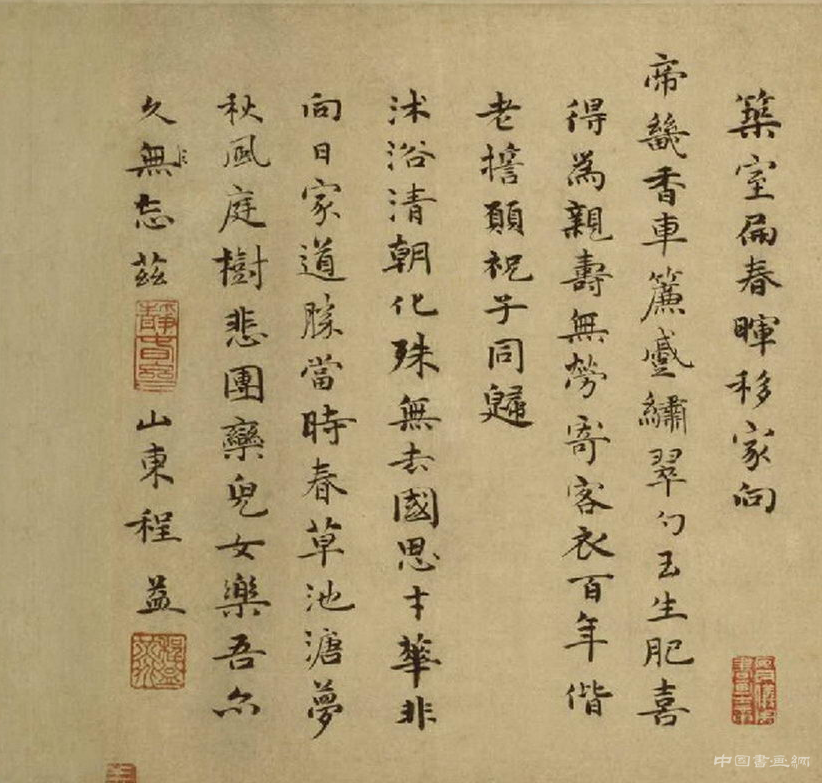 築室扁春暉移家向
帝畿香車簾蹙繡翠勺玉生肥喜
得為親壽無勞寄客衣百年偕
老願祝子同歸
沐浴清朝化殊無去國思才華非
向日家道勝當時春草池溏夢
秋風庭樹悲團欒兒女樂吾尔
久無忘茲 山東程益
中国書画網